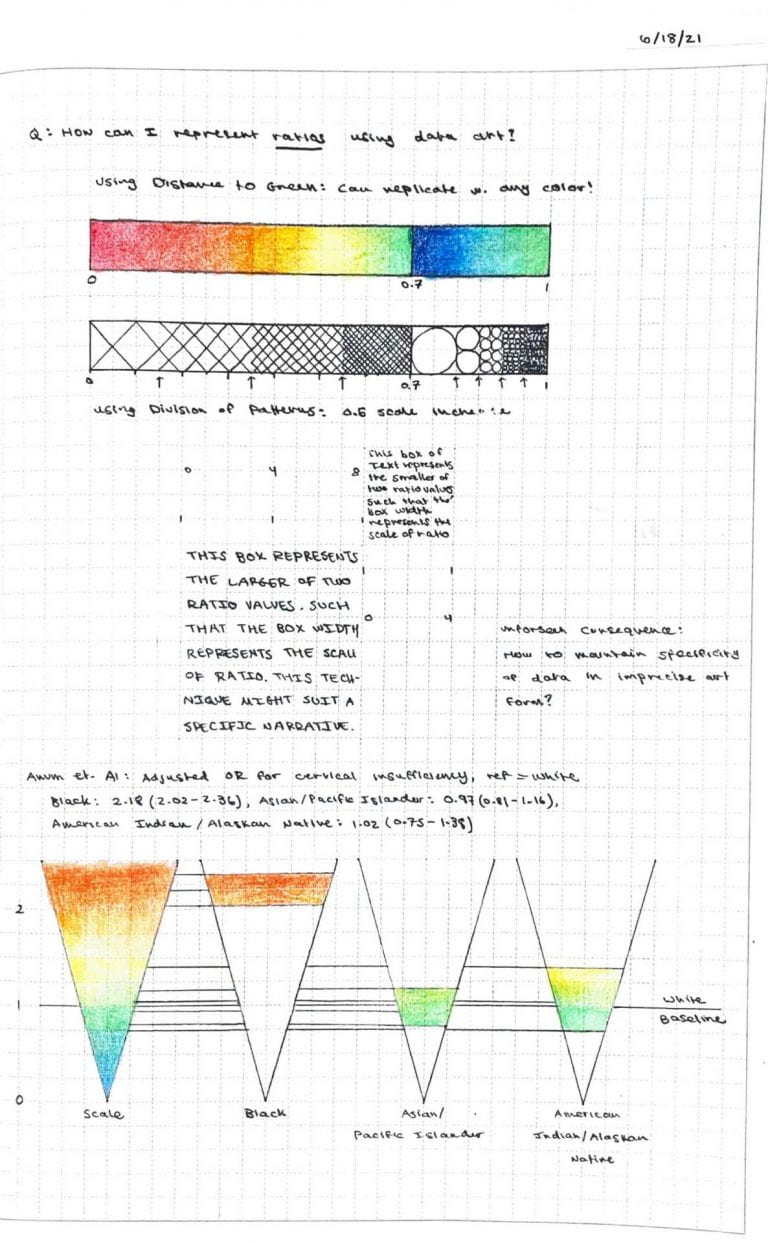 6/18/21
Q: How can I represent ratios using data art?
Using Distance to Green: Can replicate w. any color!
0 0.7 1
0 0.7 1
Using Division of Patterns: 0.5 scale increase
This box of
Text represents
the smaller of
two ratio values
such that the
box width
represents the
scale of ratio
0 4 8
THIS BOX REPRESENTS
THE LARGER OF TWO
RATIO VALUES. SUCH
THAT THE BOX WIDTH
REPRESENTS THE SCALE
OF RATIO. THIS TECH-
NIQUE MIGHT SUIT A
SPECIFIC NARRATIVE.
0 4
Unforseen Consequence:
How to maintain specificity
of data in imprecise art
form?
Anum et. Al: Adjusted OR for cervical insufficiency, ref = white
Black: 2.18 (2.02-2.36), Asian/Pacific Islander: 0.97 (0.81-1.16),
American Indian/Alaskan Native: 1.02 (0.75-1.38)
2
1
0
White
Baseline
Scale
Black
Asian/
Pacific Islander
American
Indian/Alaskan
Native